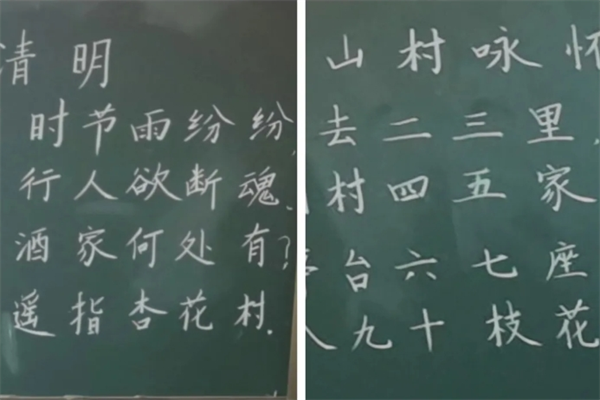 清明
时节雨纷纷,
行人欲断魂.
酒家何处有?
遥指杏花村.
山村咏怀
去二三里,
村四五家
台六七座
九十枝花